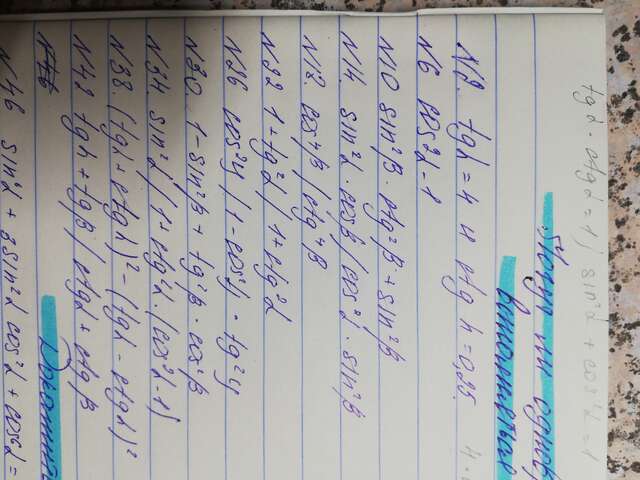 tgα · ctgα = 1; sin²α + cos²α = 1
могут ли одновр
выполняться
N2. tgα = 4 и ctg α = 0,25.
N6 cos²α - 1
N10 sin²β · ctg²β + sin²β
N14. sin²α · cosβ / cos²α · sin²β
N18. cos4β / ctg4β
N22 1 + tg²α / 1 + ctg²α
N26 cos²γ / 1 - cos²γ · tg²γ
N30. 1 - sin²β + tg²β · cos²β
N34. sin²α / 1 + ctg²α · (cos²α - 1)
N38. (tgα + ctgα)² - (tgα - ctgα)²
N42 tgα + tgβ / ctgα + ctgβ
N46 sin⁴α + 2sin²α cos²α + cos⁴α =